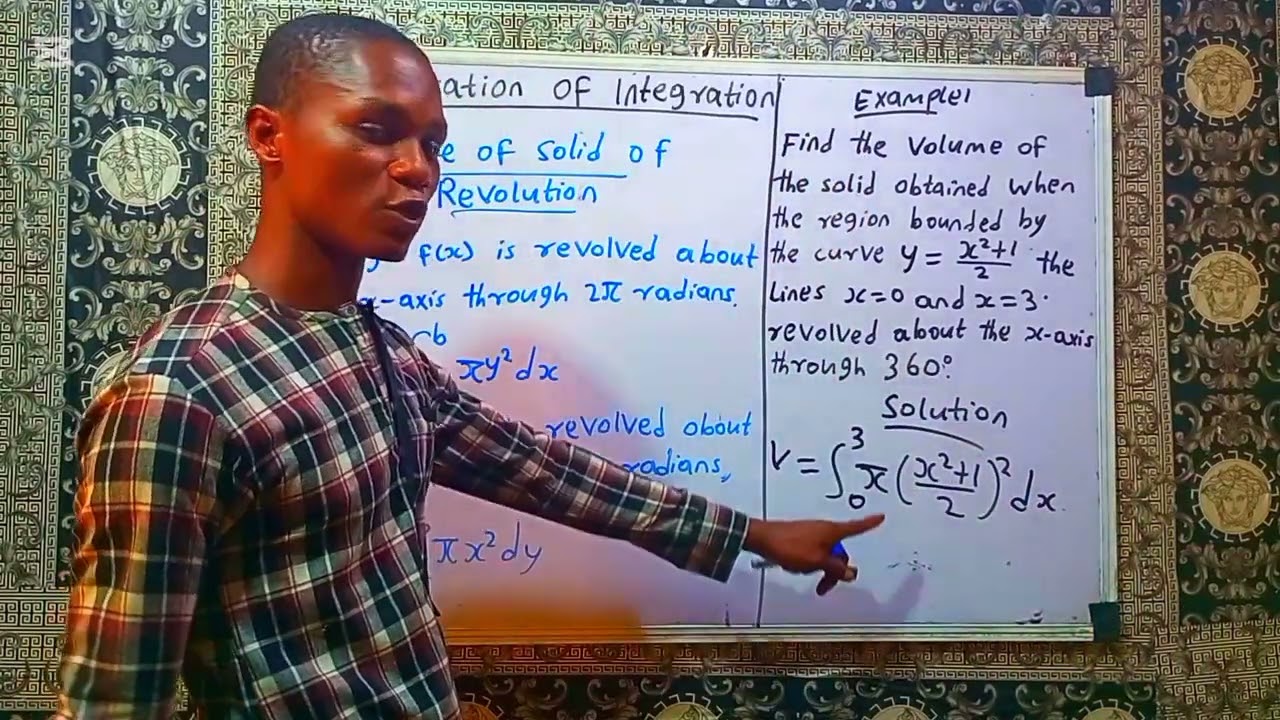 ation of Integration
e of solid of
Revolution
f(x) is revolved about
x-axis through 2π radians.
b
πy² dx
revolved about
radians,
πx² dy
Example 1
Find the volume of
the solid obtained when
the region bounded by
the curve y = x²+1/2 the
lines x=0 and x=3.
revolved about the x-axis
through 360°.
Solution
V = ∫₀³ π(x²+1/2)² dx.